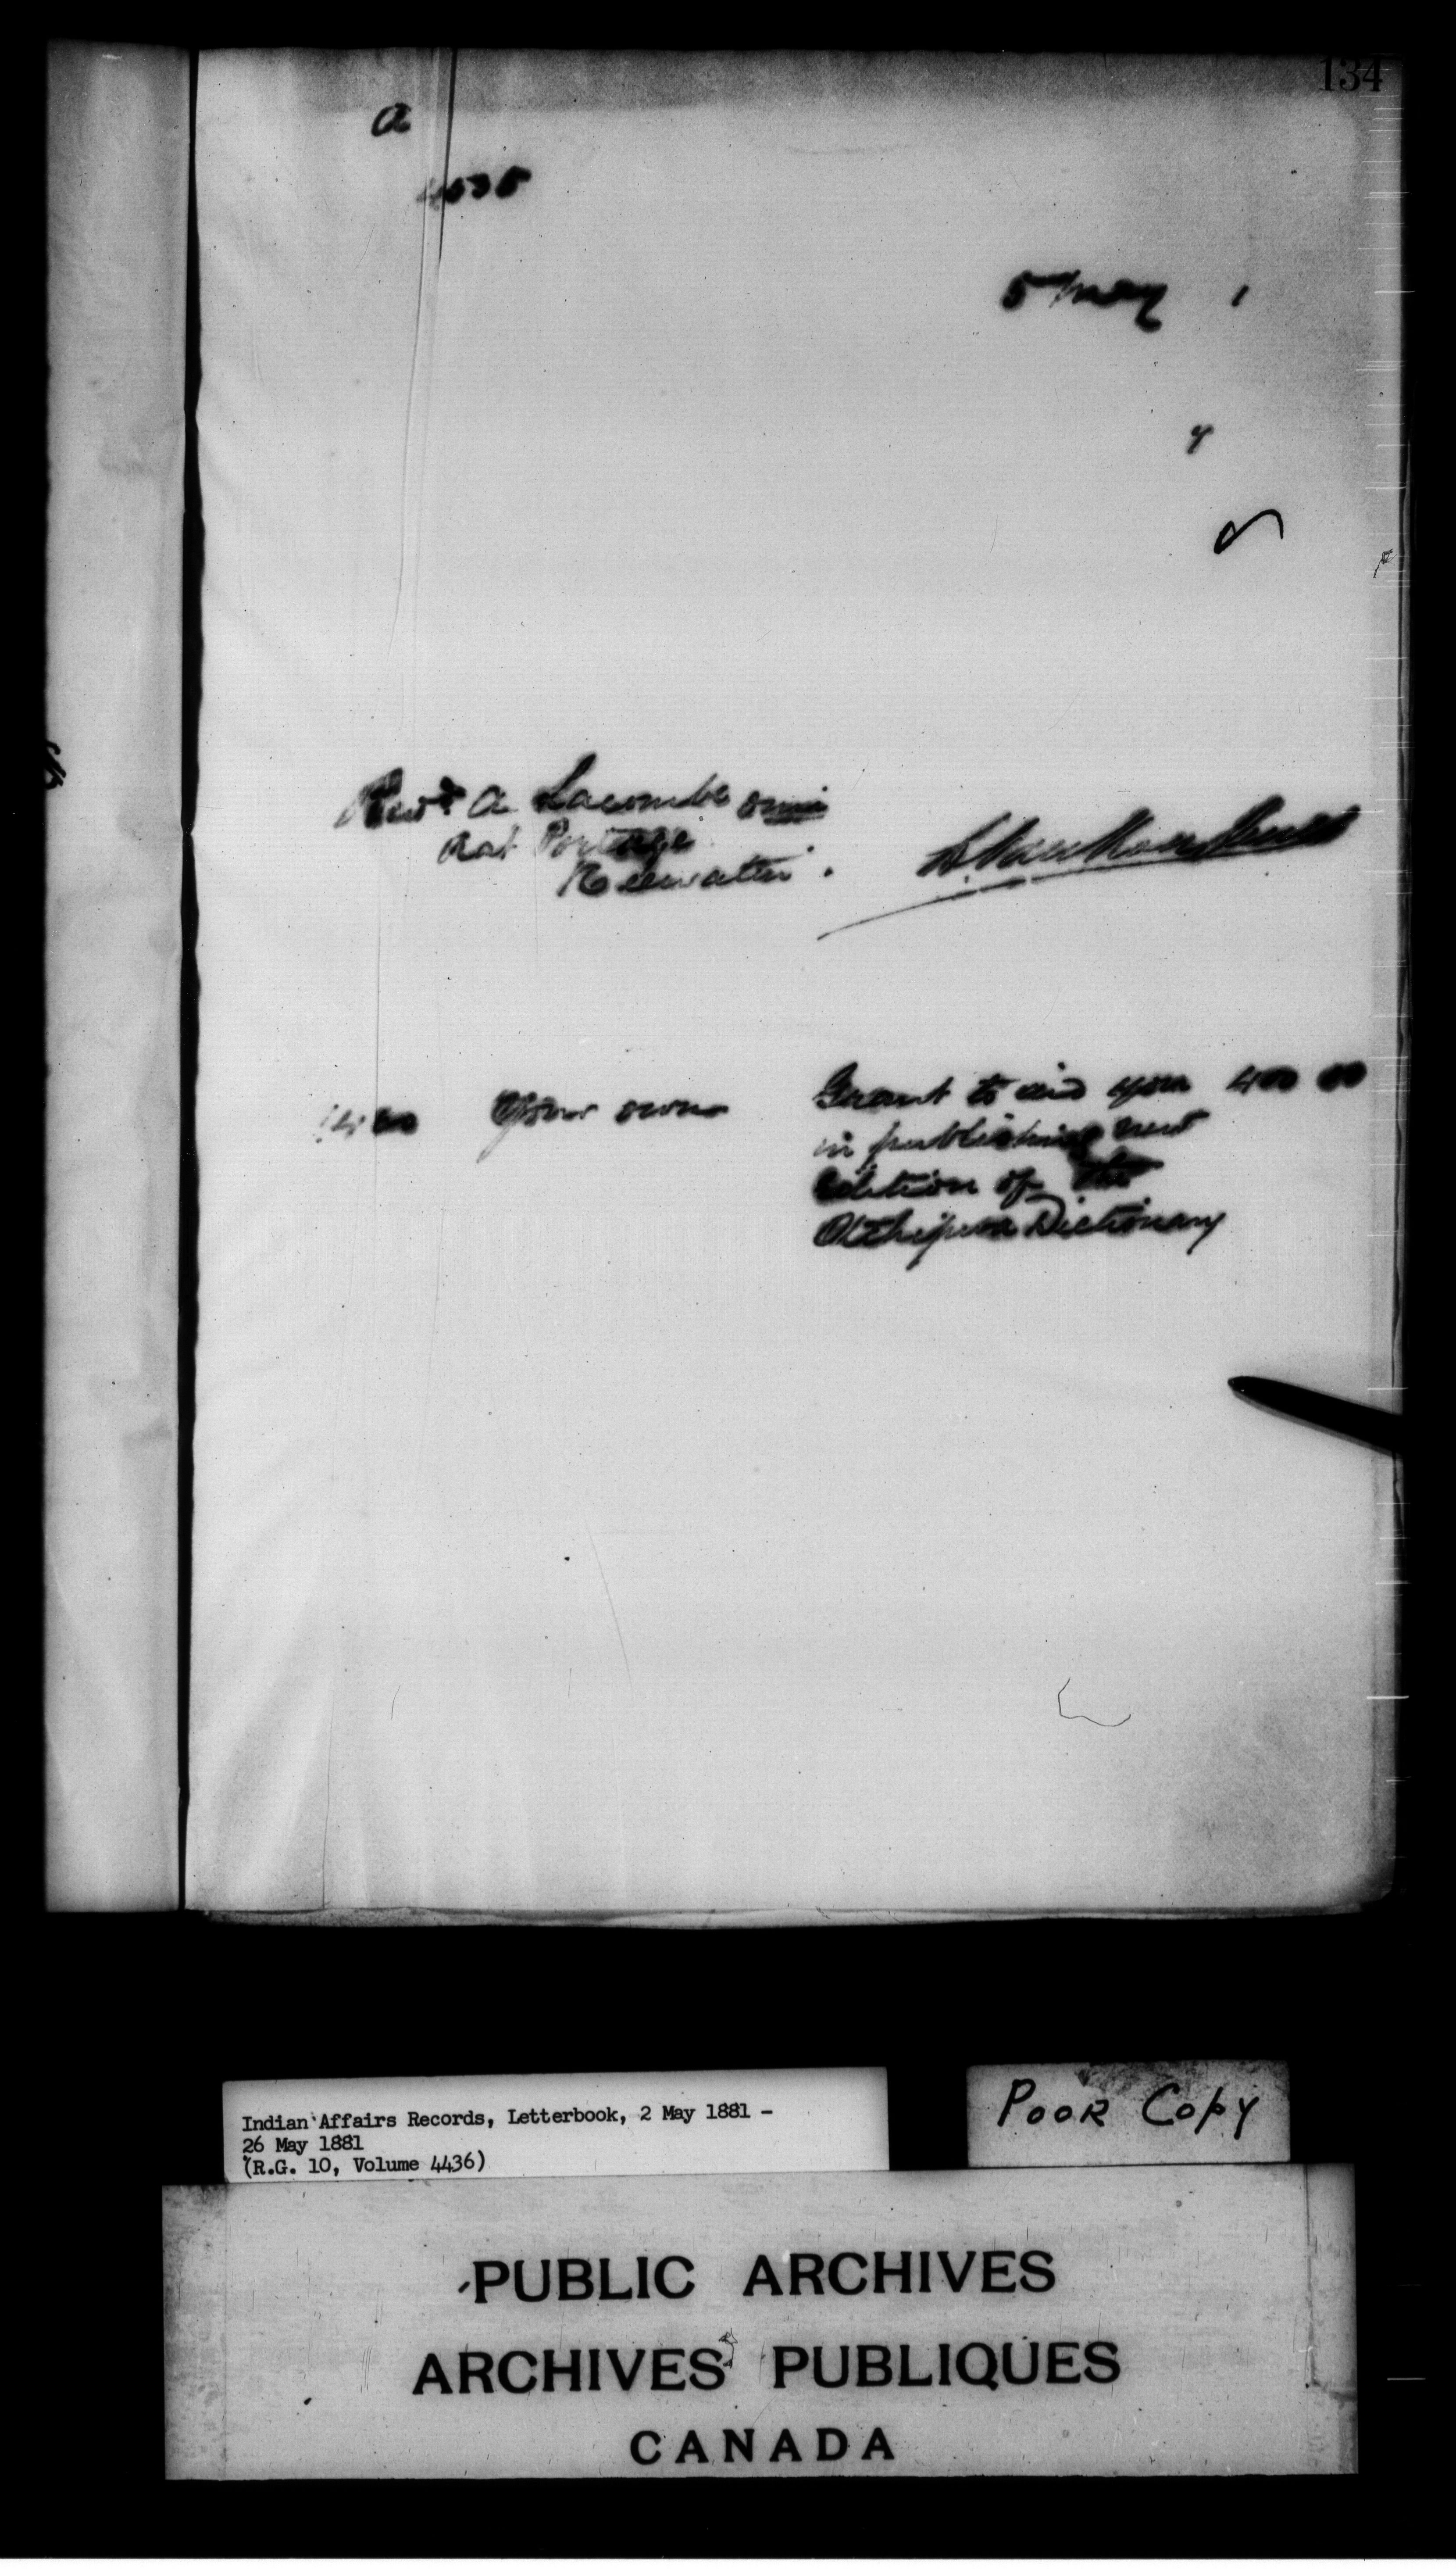 134
a
5 May 1
y
Revd. A Lacombe omi
Rat Portage
Keewatin.
Your own
Grant to aid you 400 00
in publishing new
edition of the
Otchipwa Dictionary
Indian Affairs Records, Letterbook, 2 May 1881 -
26 May 1881
(R.G. 10, Volume 4436)
POOR COPY
PUBLIC ARCHIVES
ARCHIVES PUBLIQUES
CANADA